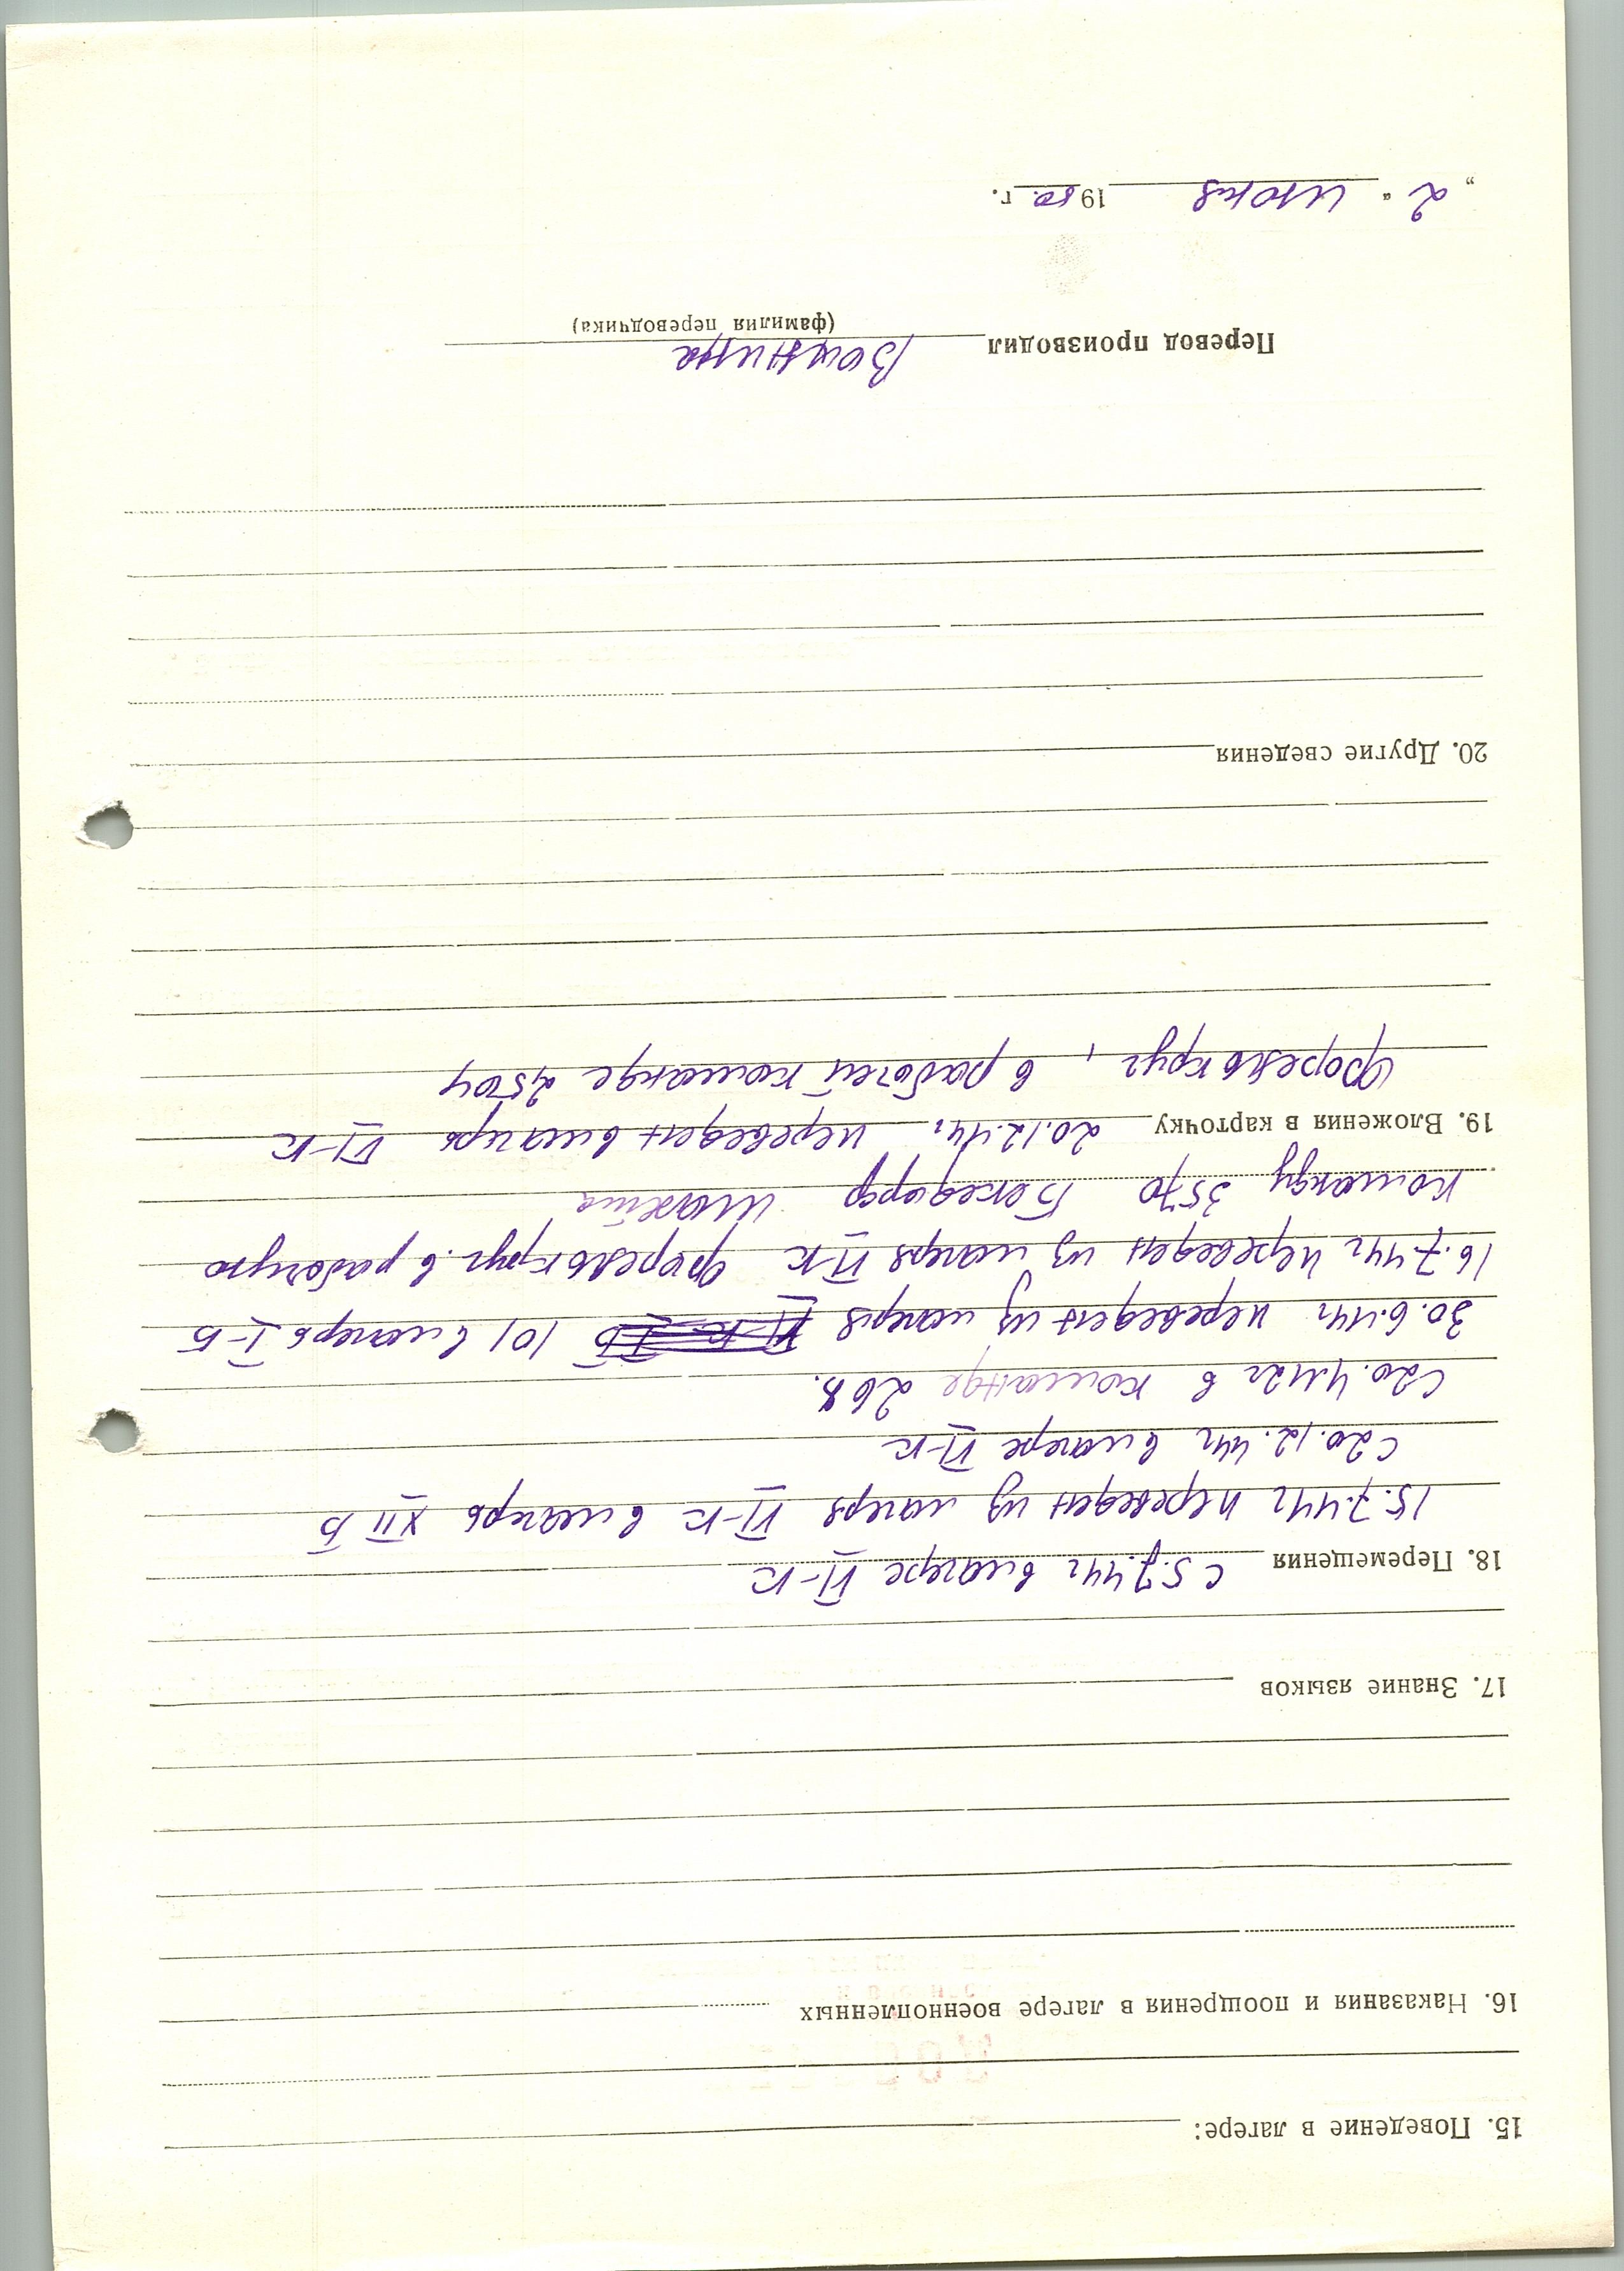 15. Поведение в лагере:
16. Наказания и поощрения в лагере военнопленных
17. Знание языков
18. Перемещения с 5.7.44г в лагере VI-К
15.7.44г переведен из лагеря VI-К в лагерь XII Б
с 20.12.44г в лагере VI-К
с 20.4.42г в команде 268.
30.6.44г переведен из лагеря 101 в лагерь I-Б
16.7.44г переведен из лагеря VI-К Форелькруг. в рабочую
команду 3570 Бекедорф шахта
19. Вложения в карточку 20.12.44г переведен в лагерь VI-К
Форелькруг, в рабочей команде 2504
20. Другие сведения
Перевод производил
(фамилия переводчика)
„2“ июня 1950. г.